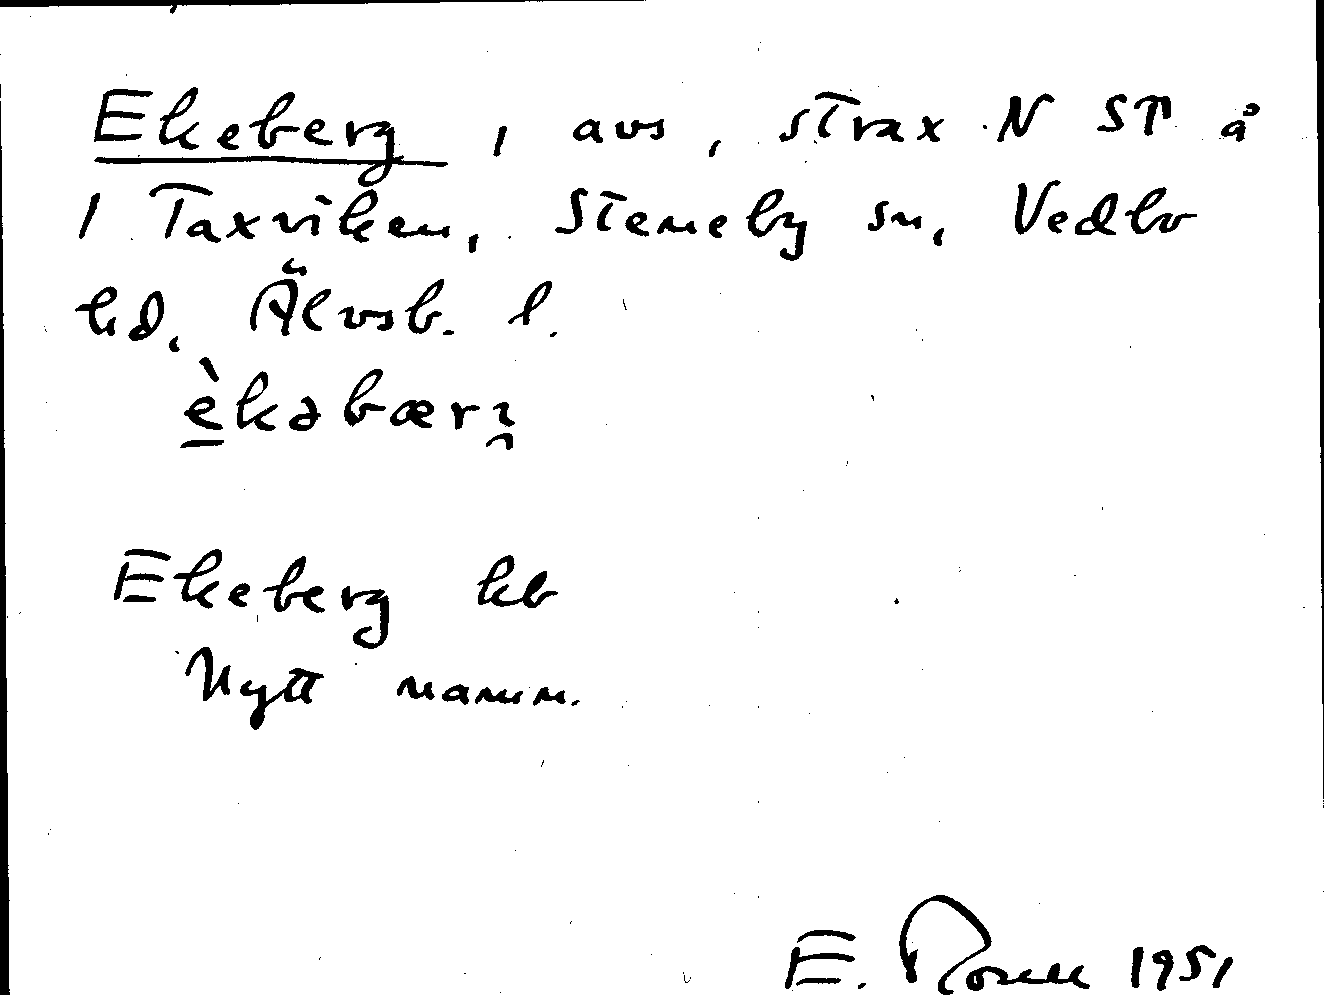 Ekeberg, avs, strax N ST å
1 Taxviken, Steneby sn, Vedbo
hd. Älvsb. l.
èkəbærɿ̯
Ekeberg kb
Nytt namn.
E. Rosell 1951